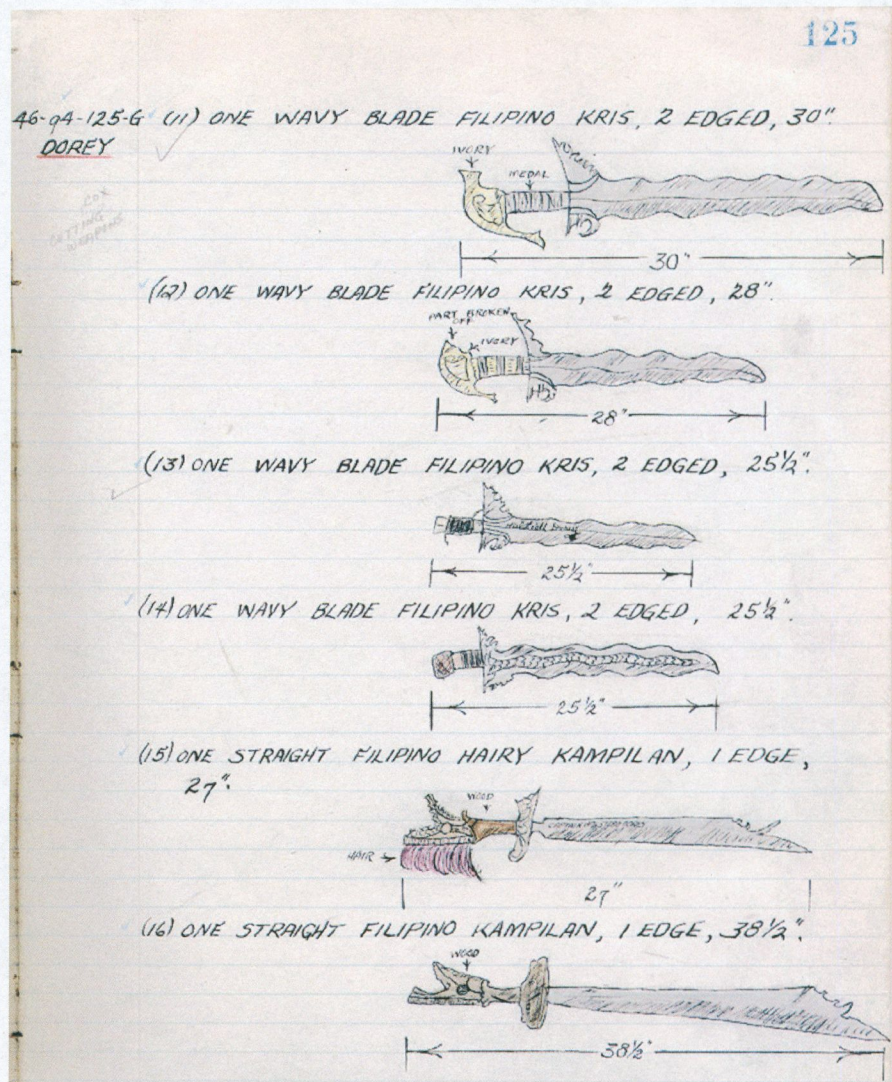 125
46-94-125-G (11) ONE WAVY BLADE FILIPINO KRIS, 2 EDGED, 30".
DOREY
COX
CUTTING
WEAPONS
IVORY
MEDAL
30"
(12) ONE WAVY BLADE FILIPINO KRIS, 2 EDGED, 28".
PART BROKEN
OFF
IVORY
28"
(13) ONE WAVY BLADE FILIPINO KRIS, 2 EDGED, 25½".
25½"
(14) ONE WAVY BLADE FILIPINO KRIS, 2 EDGED, 25½".
25½"
(15) ONE STRAIGHT FILIPINO HAIRY KAMPILAN, 1 EDGE,
27".
WOOD
HAIR
27"
(16) ONE STRAIGHT FILIPINO KAMPILAN, 1 EDGE, 38½".
WOOD
38½"